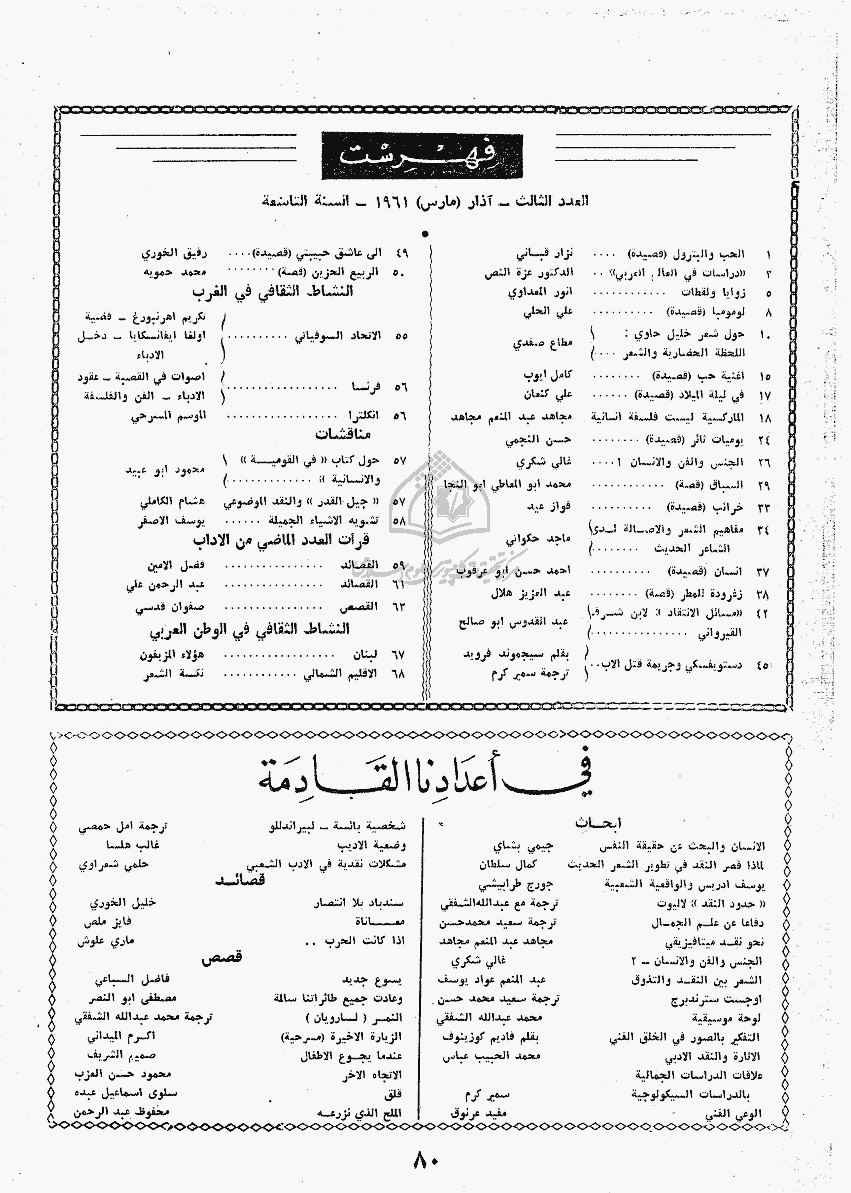 فهرست
العدد الثالث ــ آذار (مارس) ١٩٦١ ــ السنة التاسعة
١ الحب والبترول (قصيدة) .... نزار قباني
٢ «دراسات في العالم العربي» .. الدكتور عزة النص
٥ زوايا ولقطات ............ انور المعداوي
٨ لومومبا (قصيدة) .......... علي الحلي
١٠ حول شعر خليل حاوي :
اللحظة الحضارية والشعر .... مطاع صفدي
١٥ اغنية حب (قصيدة) ........ كامل ايوب
١٧ في ليلة الميلاد (قصيدة) ...... علي كنعان
١٨ الماركسية ليست فلسفة انسانية مجاهد عبد المنعم مجاهد
٢٤ يوميات ثائر (قصيدة) ........ حسن النجمي
٢٦ الجنس والفن والانسان ١ .... غالي شكري
٢٩ السباق (قصة) ............ محمد ابو المعاطي ابو النجا
٣٣ خرائب (قصيدة) .......... فواز عيد
٣٤ مفاهيم الشعر والاصالة لدى
الشاعر الحديث ........ ماجد حكواتي
٣٧ انسان (قصيدة) .......... احمد حسن ابو عرقوب
٣٨ زغرودة للمطر (قصة) ........ عبد العزيز هلال
٤٢ «مسائل الانتقاد» لابن شرف
القيرواني ............... عبد القدوس ابو صالح
٤٥ دستويفسكي وجريمة قتل الاب .. بقلم سيجموند فرويد
ترجمة سمير كرم
٤٩ الى عاشق حبيبتي (قصيدة) .... رفيق الخوري
٥٠ الربيع الحزين (قصة) ........ محمد حمويه
النشاط الثقافي في الغرب
٥٥ الاتحاد السوفياتي .......... تكريم اهرنبورغ ــ قضية
اولغا ايفانسكايا ــ دخل
الادباء
٥٦ فرنسا .............. اصوات في القصبة ــ عقود
الادباء ــ الفن والفلسفة
٥٦ انكلترا ................. الموسم المسرحي
مناقشات
٥٧ حول كتاب « في القومية »
والانسانية » ............. محمود ابو عبيد
٥٧ « جيل القدر » والنقد الموضوعي هشام الكاملي
٥٨ تشويه الاشياء الجميلة ...... يوسف الاصفر
قرأت العدد الماضي من الآداب
٥٩ القصائد ............... فضل الامين
٦١ القصائد ............... عبد الرحمن علي
٦٣ القصص ............... صفوان قدسي
النشاط الثقافي في الوطن العربي
٦٧ لبنان ................. هؤلاء المزيفون
٦٨ الاقليم الشمالي ............ نكسة الشعر
في أعدادنا القادمة
ابحاث
الانسان والبحث عن حقيقة النفس جيمي بشاي
لماذا قصر النقد في تطوير الشعر الحديث كمال سلطان
يوسف ادريس والواقعية الشعبية جورج طرابيشي
« حدود النقد » لاليوت ترجمة مع عبدالله الشفقي
دفاعا عن علم الجمال ترجمة سعيد محمد حسن
نحو نقد ميتافيزيقي مجاهد عبد المنعم مجاهد
الجنس والفن والانسان ــ ٢ غالي شكري
الشعر بين النقد والتذوق عبد المنعم عواد يوسف
اوجست سترندبرج ترجمة سعيد محمد حسن
لوحة موسيقية محمد عبدالله الشفقي
التفكير بالصور في الخلق الفني بقلم فاديم كوزينوف
الاثارة والنقد الادبي محمد الحبيب عباس
علاقات الدراسات الجمالية
بالدراسات السيكولوجية سمير كرم
الوعي الفني مفيد عرنوق
شخصية بائسة ــ لبيراندللو ترجمة امل حمصي
وضعية الاديب غالب هلسا
مشكلات نقدية في الادب الشعبي حلمي شعراوي
قصائد
سندباد بلا انتصار خليل الخوري
معاناة فايز ملص
اذا كانت الحرب .. ماري علوش
قصص
يسوع جديد فاضل السباعي
وعادت جميع طائراتنا سالمة مصطفى ابو النصر
النمر ( لسارويان ) ترجمة محمد عبدالله الشفقي
الزيارة الاخيرة (مسرحية) اكرم الميداني
عندما يجوع الاطفال صميم الشريف
الاتجاه الآخر محمود حسن العزب
قلق سلوى اسماعيل عبده
الملح الذي نزرعه محفوظ عبد الرحمن
٨٠